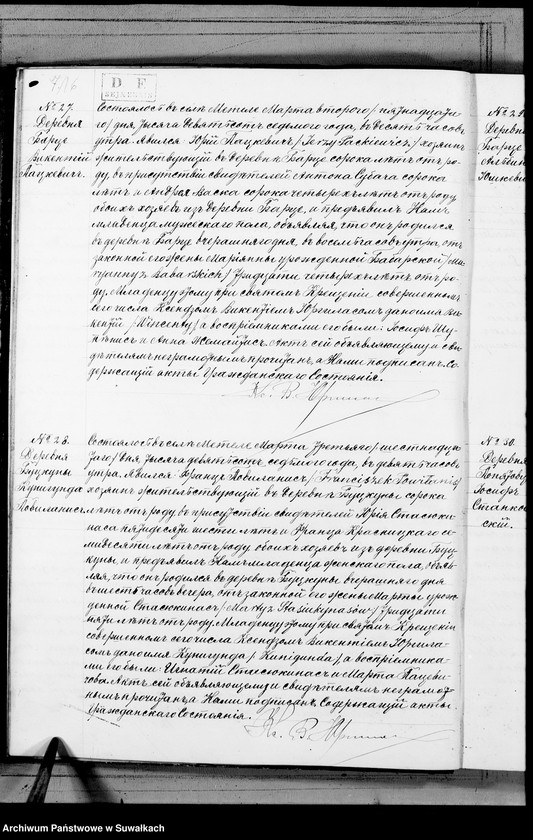 7/16
D F
№ 27.
Деревня
Барце
Викентій
Пацкевичъ.
Состоялось въ селѣ Метеле Марта второго /пятнадцата-
го/ дня, тысяча девятьсотъ седьмого года, въ десять часовъ
утра. Явился Юрій Пацкевичъ /Jerzy Packiewicz/, хозяинъ
жительствующій въ деревнѣ Барце сорока лѣтъ отъ ро-
ду, въ присутствіи свидѣтелей Антона Субача сорока
лѣтъ и Андрея Васка сорока четырехъ лѣтъ отъ роду
обоихъ хозяевъ изъ деревни Барце, и предъявилъ Намъ
младенца мужескаго пола, объявляя, что онъ родился
въ деревнѣ Барце вчерашняго дня, въ восемь часовъ утра, отъ
законной его жены Маріянны урожденной Бабарской /Ma-
ryanny z Babarskich/ тридцати четырехъ лѣтъ отъ ро-
ду. Младенцу этому при святомъ Крещеніи совершенномъ
сего числа Ксендзомъ Викентіемъ дано имя Ви-
кентій /Wincenty/, а воспріемниками его были: Іосифъ
и Анна Актъ сей объявляющему и сви-
дѣтелямъ неграмотнымъ прочитанъ, а Нами подписанъ. Со-
держащій акты Гражданскаго Состоянія.
Кс. В.
№ 28.
Деревня
Буцкуны
Кунигунда
Повиланисъ.
Состоялось въ селѣ Метеле Марта третьяго /шестнадца-
таго/ дня, тысяча девятьсотъ седьмого года, въ девять часовъ
утра. Явился Францъ Повиланисъ /Franciszek Powilanis/
хозяинъ жительствующій въ деревнѣ Буцкуны сорока
лѣтъ отъ роду, въ присутствіи свидѣтелей Юрія Стасюки-
наса пятидесяти шести лѣтъ и Франца Красницкаго се-
мидесяти лѣтъ отъ роду, обоихъ хозяевъ изъ деревни Буц-
куны, и предъявилъ Намъ младенца женскаго пола, объяв-
ляя, что онъ родился въ деревнѣ Буцкуны вчерашняго дня
въ шесть часовъ вечера, отъ законной его жены Марты урож-
денной Стасюкинасъ /Marty z Stasiukynasów/ тридцати
пяти лѣтъ отъ роду. Младенцу этому при святомъ Крещеніи
совершенномъ сего числа Ксендзомъ Викентіемъ
дано имя Кунигунда /Kunigunda/, а воспріемника-
ми его были: Игнатій Стасюкинасъ и Марта
Актъ сей объявляющему и свидѣтелямъ неграмот-
нымъ прочитанъ, а Нами подписанъ. Содержащій акты
Гражданскаго Состоянія.
Кс. В.
№ 29.
Деревня
Барце
№ 30.
Деревня
Іосифъ
Станков-
скій.
Archiwum Państwowe w Suwałkach